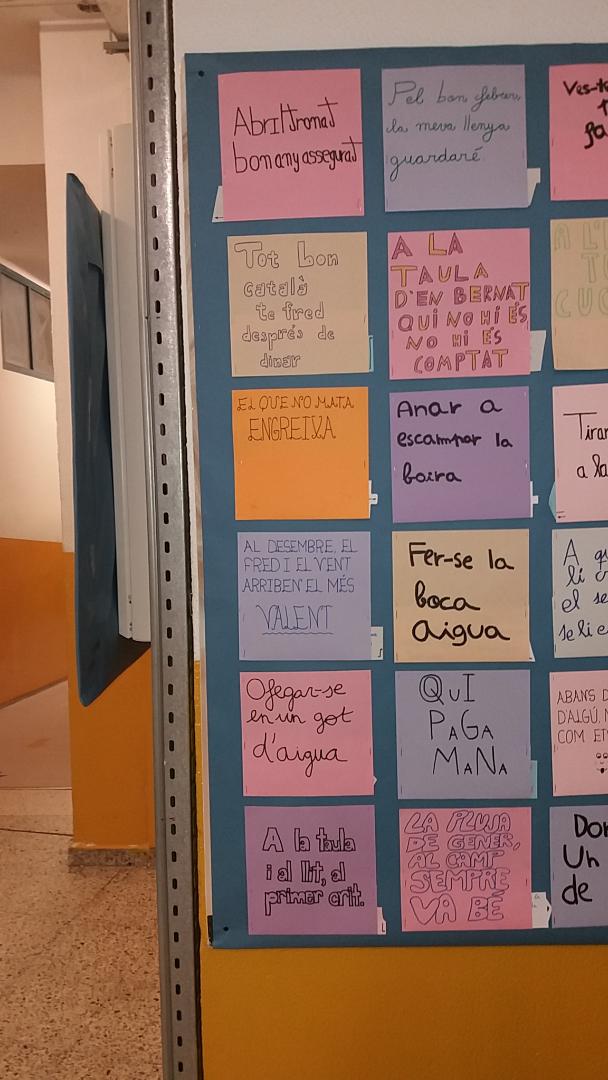 Abril tronat
bon any assegurat
Pel bon febrer,
la meva llenya
guardaré.
Tot bon
català
te fred
després de
dinar
A LA
TAULA
D'EN BERNAT
QUI NO HI ÉS
NO HI ÉS
COMPTAT
EL QUE NO MATA
ENGREIXA
Anar a
escampar la
boira
Tirar
a la
AL DESEMBRE, EL
FRED I EL VENT
ARRIBEN EL MÉS
VALENT
Fer-se la
boca
aigua
A
li
el se
se li e
Ofegar-se
en un got
d'aigua
QUI
PAGA
MANA
ABANS D
D'ALGÚ,
COM ET
A la taula
i al llit, al
primer crit.
LA PLUJA
DE GENER,
AL CAMP
SEMPRE
VA BÉ
Un
de